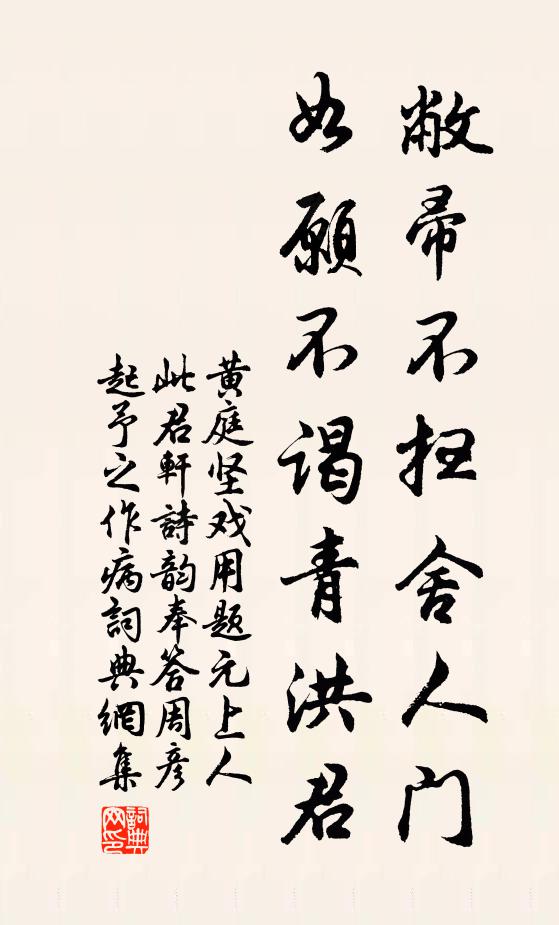 敝帚不扫舍人门
如愿不谒青洪君
黄庭坚戏用题元上人
此君軒詩韵奉答周彦
起予之作病詞典網集
詞典
网印